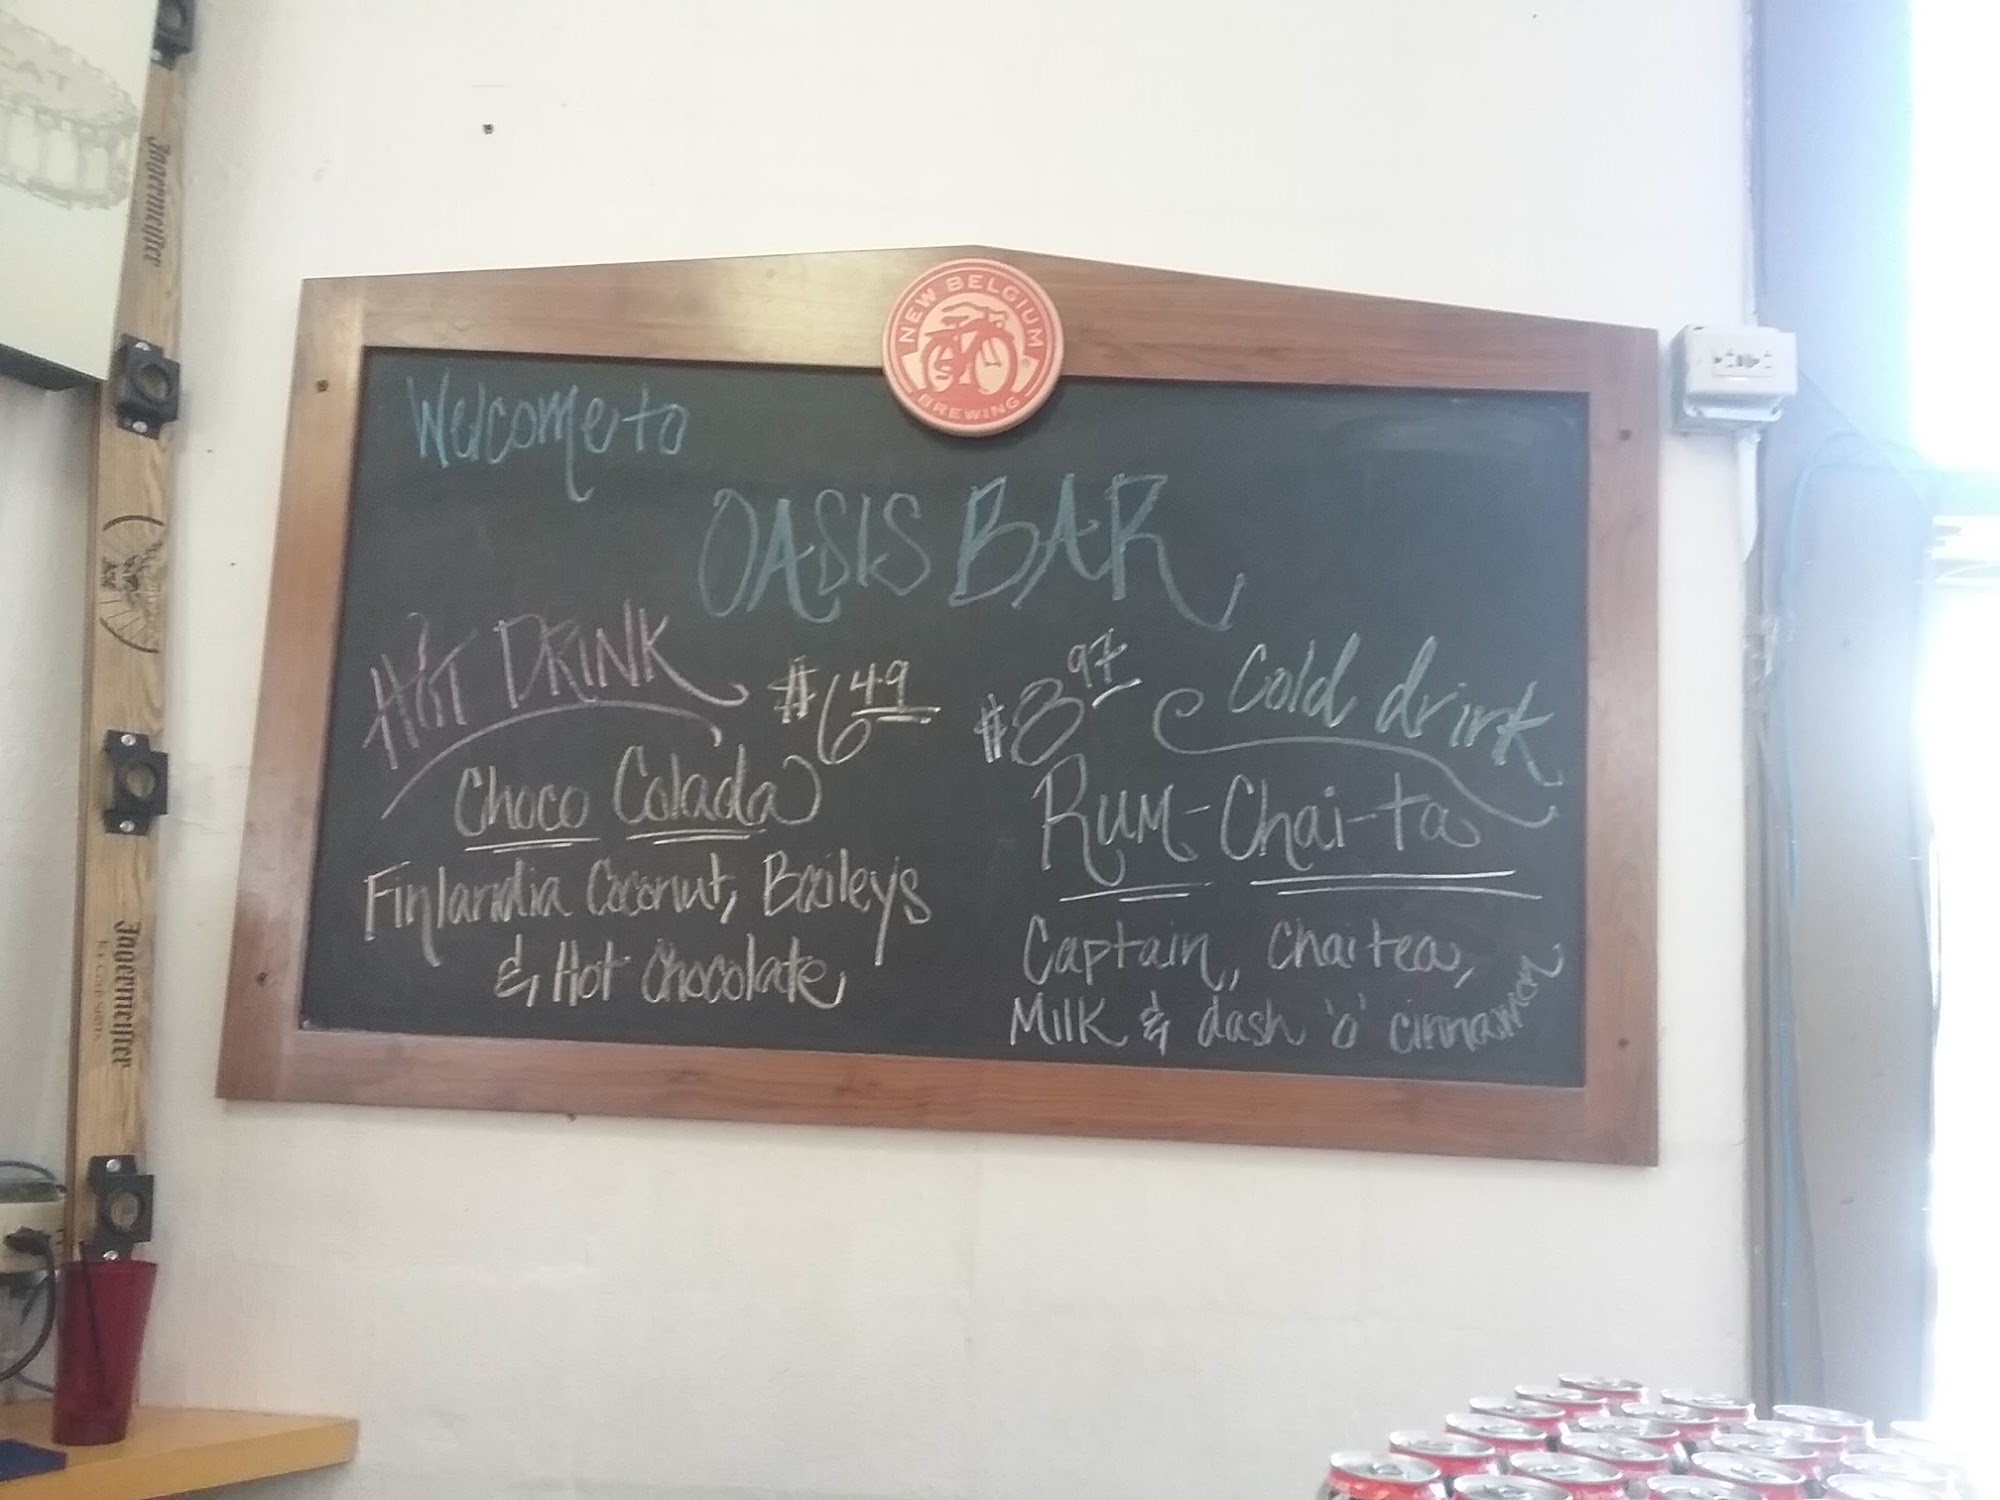 EAT
Jägermeister
NEW BELGIUM
BREWING
Welcome to
OASIS BAR
HOT DRINK
$6.49
Choco Colada
Finlandia Coconut, Baileys
& Hot Chocolate
Cold drink
$3.97
Rum-Chai-ta
Captain, Chai tea,
Milk & dash 'o' cinnamon
Jägermeister
ICE COLD SHOTS